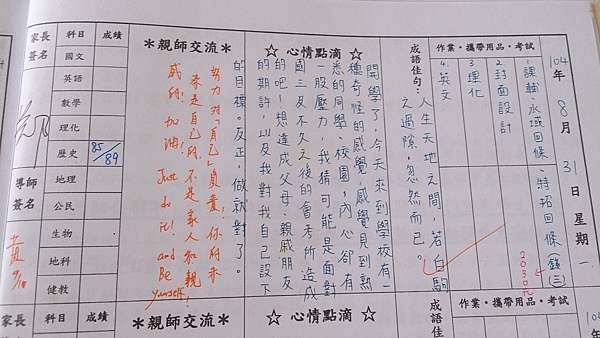 104年 8月 31日 星期一
作業・攜帶用品・考試
1.課輔、永域回條、特招回條(錄)(三)
2030元
2.封面設計
3.理化
4.英文
成語佳句：
人生天地之間，若白駒
之過隙，忽然而已。
☆ 心情點滴 ☆
開學了，今天來到學校有一
種奇怪的感覺，感覺見到熟
悉的同學、校園，內心卻有
一股壓力，我猜可能是面對
國三及不久之後的會考所造成
的吧！想達成父母、親戚朋友
的期許，以及我對我自己設下
的目標。反正，做就對了。
＊親師交流＊
努力為「自己」負責！你的未
來是自己的，不是家人和親
戚的！加油！Just
do
it! and
Be
yourself!
科目 成績
國文
英語
數學
理化
歷史 85/89
地理
公民
生物
地科
健教
家長
簽名
導師
簽名
作業・攜帶用品・考試
成語佳
☆ 心情點滴 ☆
＊親師交流＊
科目 成績
國文
家長
簽名
104